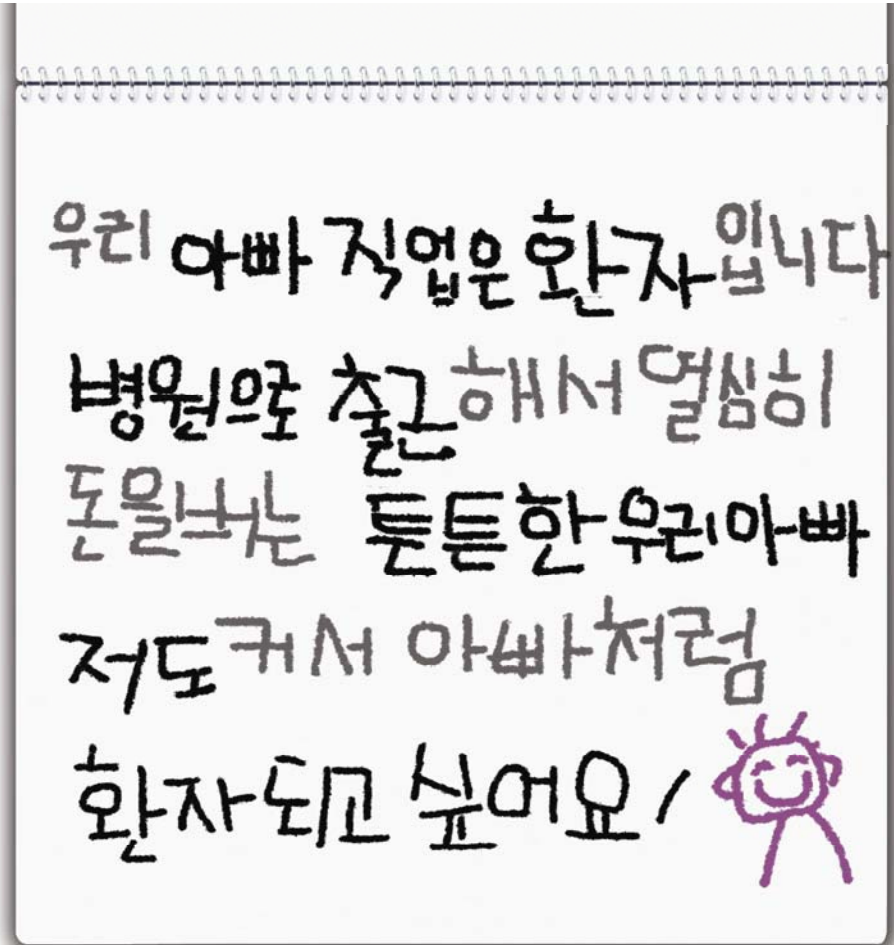 우리 아빠 직업은 환자입니다
병원으로 출근해서 열심히
돈을버는 튼튼한 우리아빠
저도 커서 아빠처럼
환자되고 싶어요!